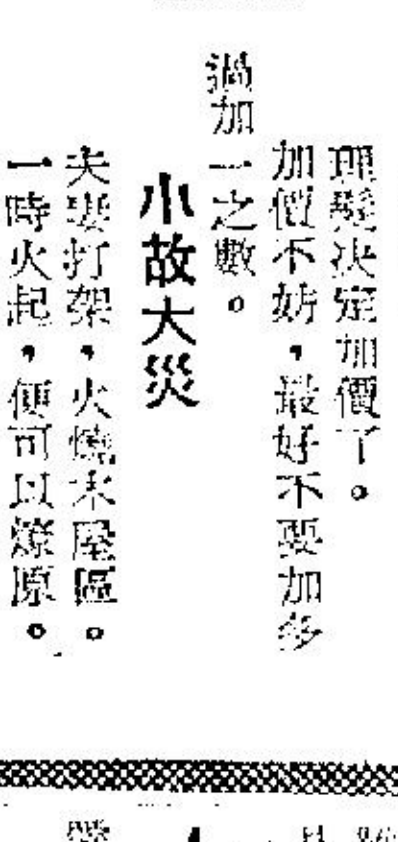 理髮决定加價了。
加價不妨，最好不要加多
過加一之數。
小故大災
夫妻打架，火燒木屋區。
一時火起，便可以燎原。